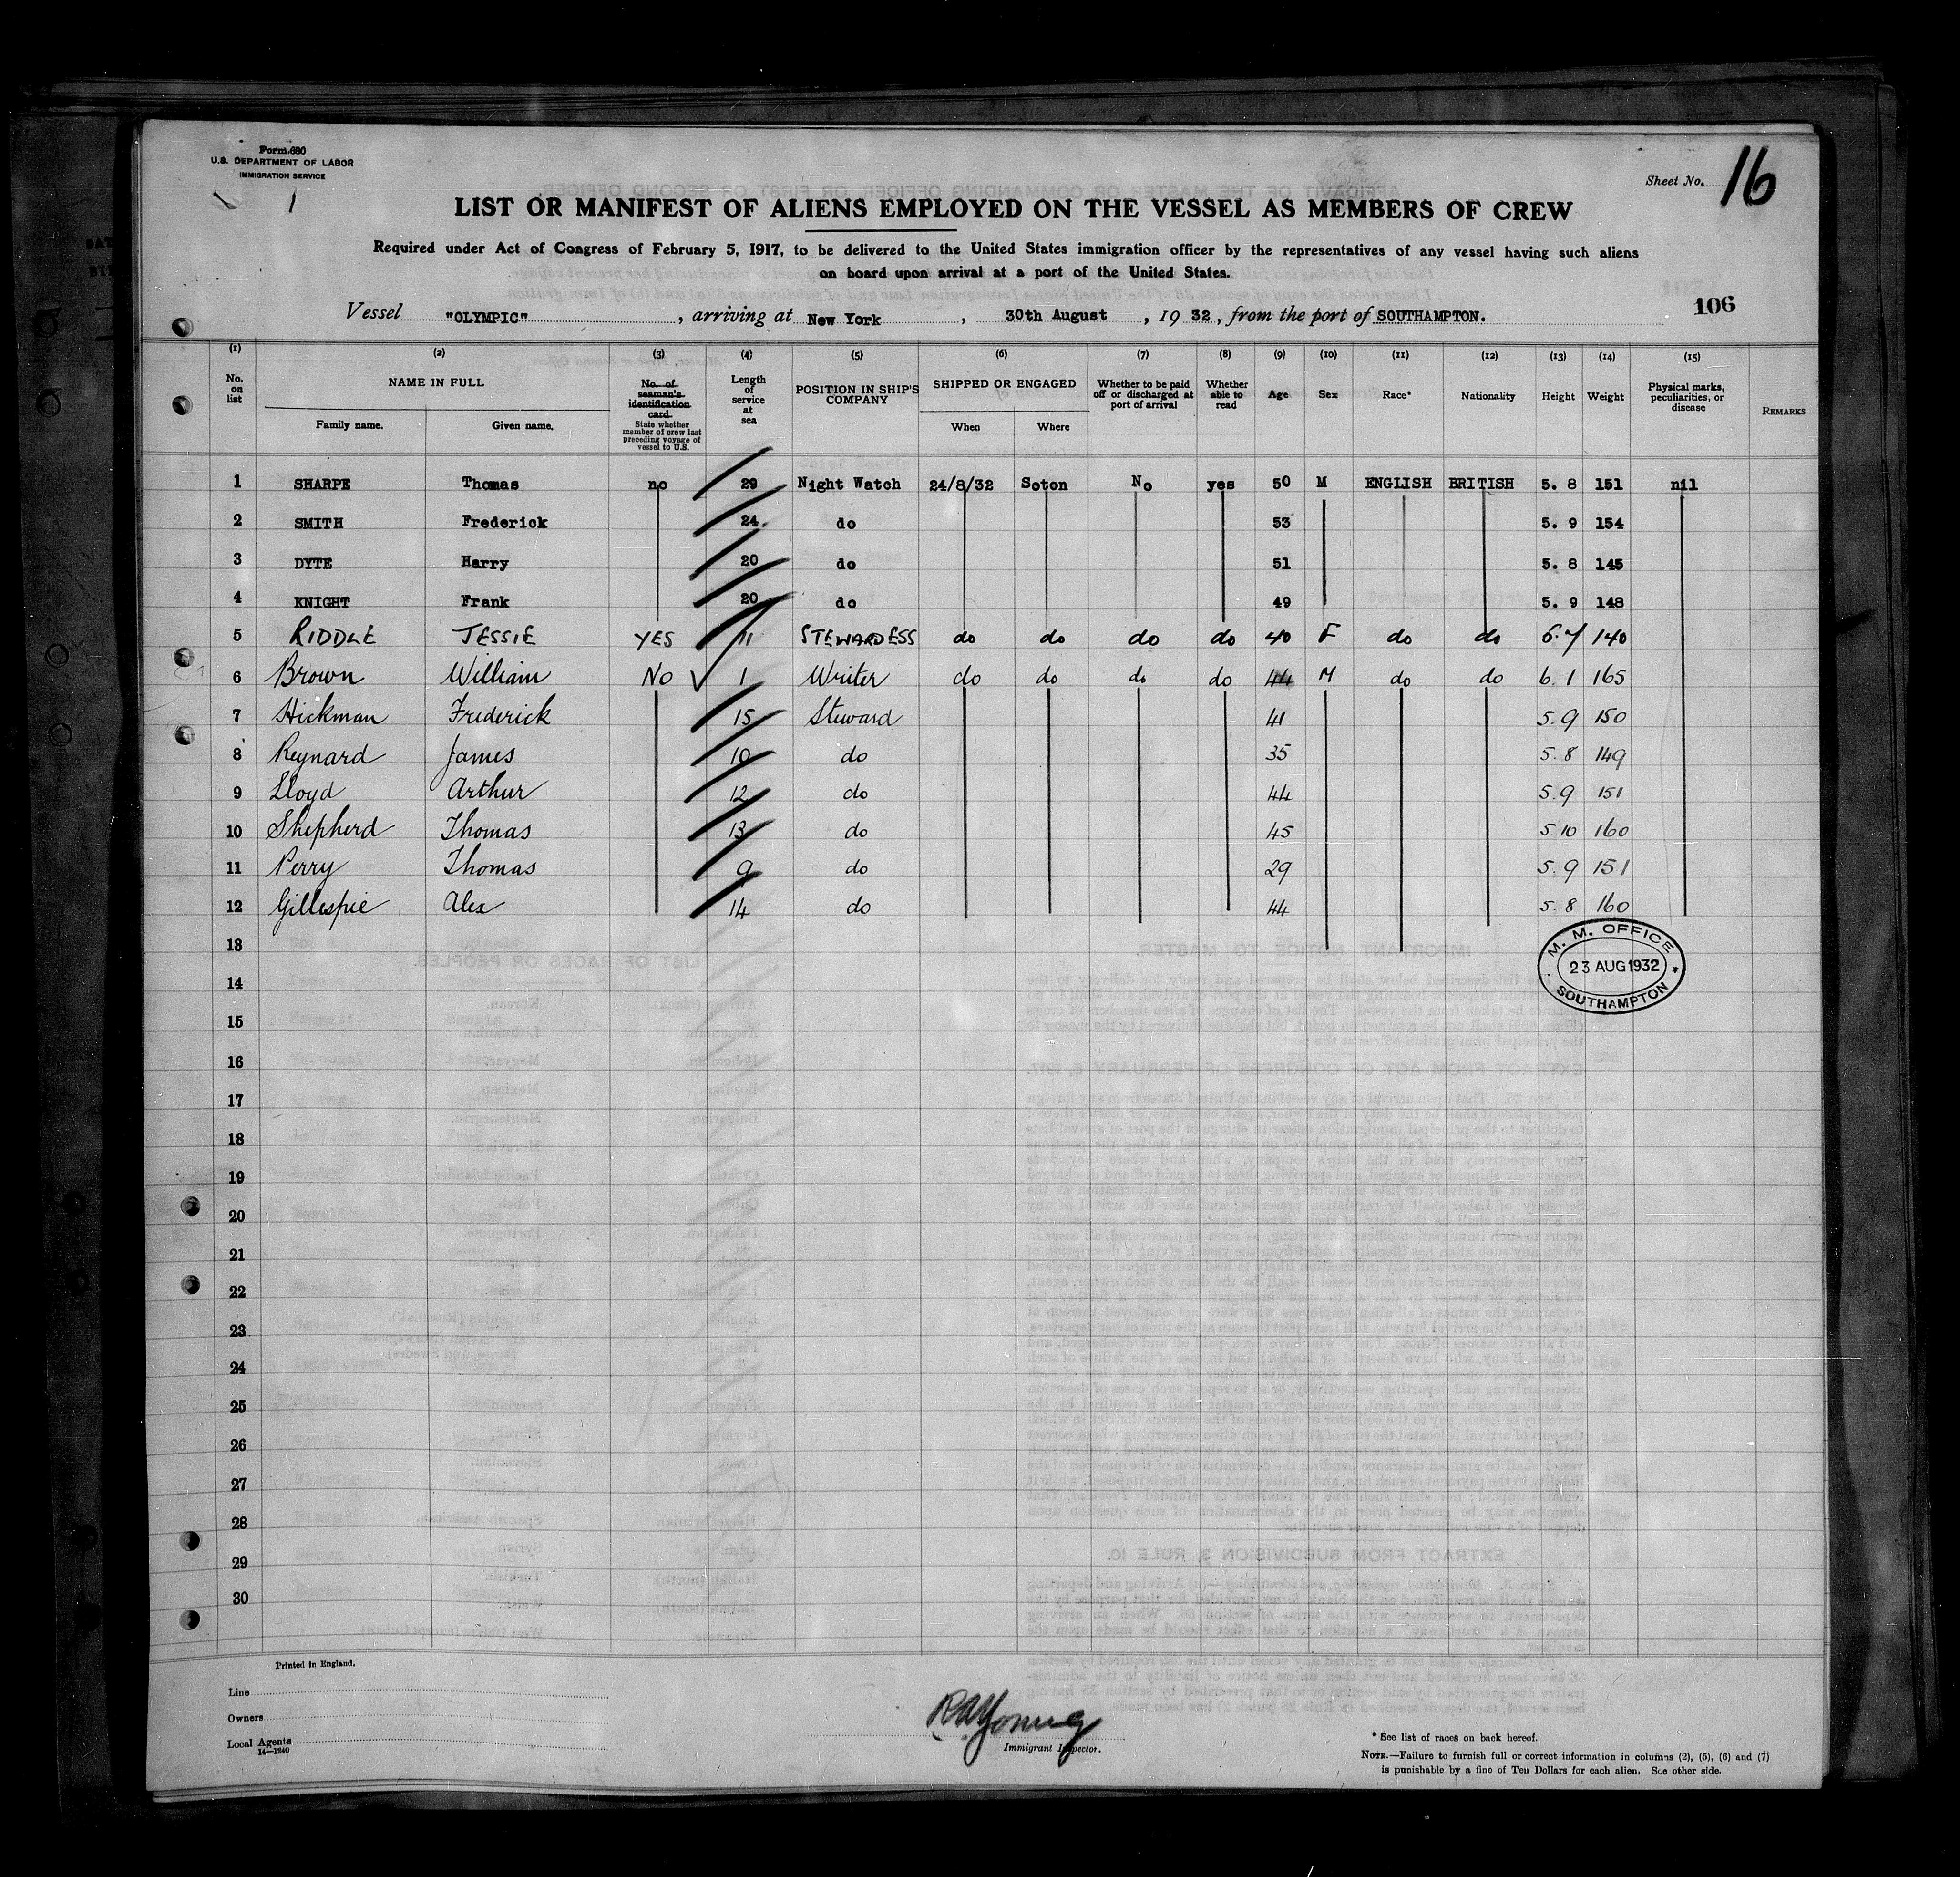 Form 680
U.S. DEPARTMENT OF LABOR
IMMIGRATION SERVICE
1
Sheet No. 16
LIST OR MANIFEST OF ALIENS EMPLOYED ON THE VESSEL AS MEMBERS OF CREW
Required under Act of Congress of February 5, 1917, to be delivered to the United States immigration officer by the representatives of any vessel having such aliens
on board upon arrival at a port of the United States.
Vessel "OLYMPIC", arriving at New York, 30th August, 1932, from the port of SOUTHAMPTON.
106
(1) (2) (3) (4) (5) (6) (7) (8) (9) (10) (11) (12) (13) (14) (15)
No. on list
NAME IN FULL
Family name. Given name.
No. of seaman's identification card.
State whether member of crew last preceding voyage of vessel to U.S.
Length of service at sea
POSITION IN SHIP'S COMPANY
SHIPPED OR ENGAGED
When Where
Whether to be paid off or discharged at port of arrival
Whether able to read
Age
Sex
Race*
Nationality
Height
Weight
Physical marks, peculiarities, or disease
REMARKS
1 SHARPE Thomas no 29 Night Watch 24/8/32 Soton No yes 50 M ENGLISH BRITISH 5. 8 151 nil
2 SMITH Frederick 24. do 53 5. 9 154
3 DYTE Harry 20 do 51 5. 8 145
4 KNIGHT Frank 20 do 49 5. 9 148
5 RIDDLE JESSIE YES 11 STEWARDESS do do do do 40 F do do 5.7 140
6 Brown William No 1 Writer do do do do 44 M do do 6.1 165
7 Hickman Frederick 15 Steward 41 5.9 150
8 Reynard James 10 do 35 5.8 149
9 Lloyd Arthur 12 do 44 5.9 151
10 Shepherd Thomas 13 do 45 5.10 160
11 Perry Thomas 9 do 29 5.9 151
12 Gillespie Alex 14 do 44 5.8 160
13
14
15
16
17
18
19
20
21
22
23
24
25
26
27
28
29
30
M. M. OFFICE
23 AUG 1932
SOUTHAMPTON
Printed in England.
Line
Owners
Local Agents
14—1240
R A Young
Immigrant Inspector.
* See list of races on back hereof.
NOTE.—Failure to furnish full or correct information in columns (2), (5), (6) and (7)
is punishable by a fine of Ten Dollars for each alien. See other side.